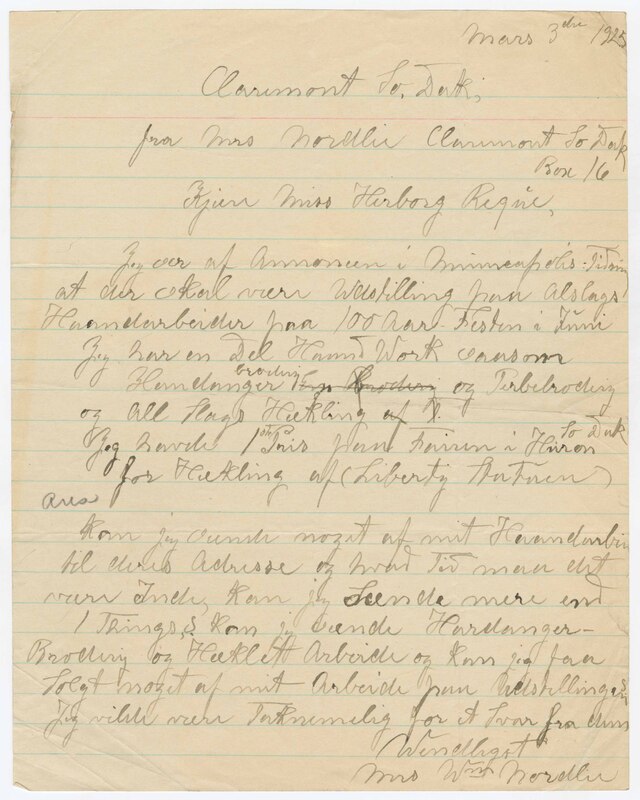 Mars 3die 1925
Claremont So. Dak.
fra Mrs Nordlie Claremont So Dak
Box 16
Kjere Miss Herborg Reque,
Jeg ser af Annoncen i Minneapolis Tidin
at der skal være Udstilling paa Alslags
Haandarbeider paa 100 Aar. Festen i Juni
Jeg har en Del Haand Work saasom
Hardanger brodery og Perlebrodery
og all slags Hekling af
Jeg havde 1st Pris paa Fairen i Huron So Dak
for Hekling af (Liberty Statuen)
kan jeg sende noget af mit Haandarbei
til deres Adresse og hvad Tid maa det
være Inde, kan jeg Sende mere end
1 Things, kan jeg sende Hardanger-
Brodery og Heklett Arbeide og kan jeg faa
Solgt noget af mit Arbeide paa Udstillingen
Jeg vilde være Taknemelig for et Svar fra dem
Wendligst
Mrs Wm Nordlie